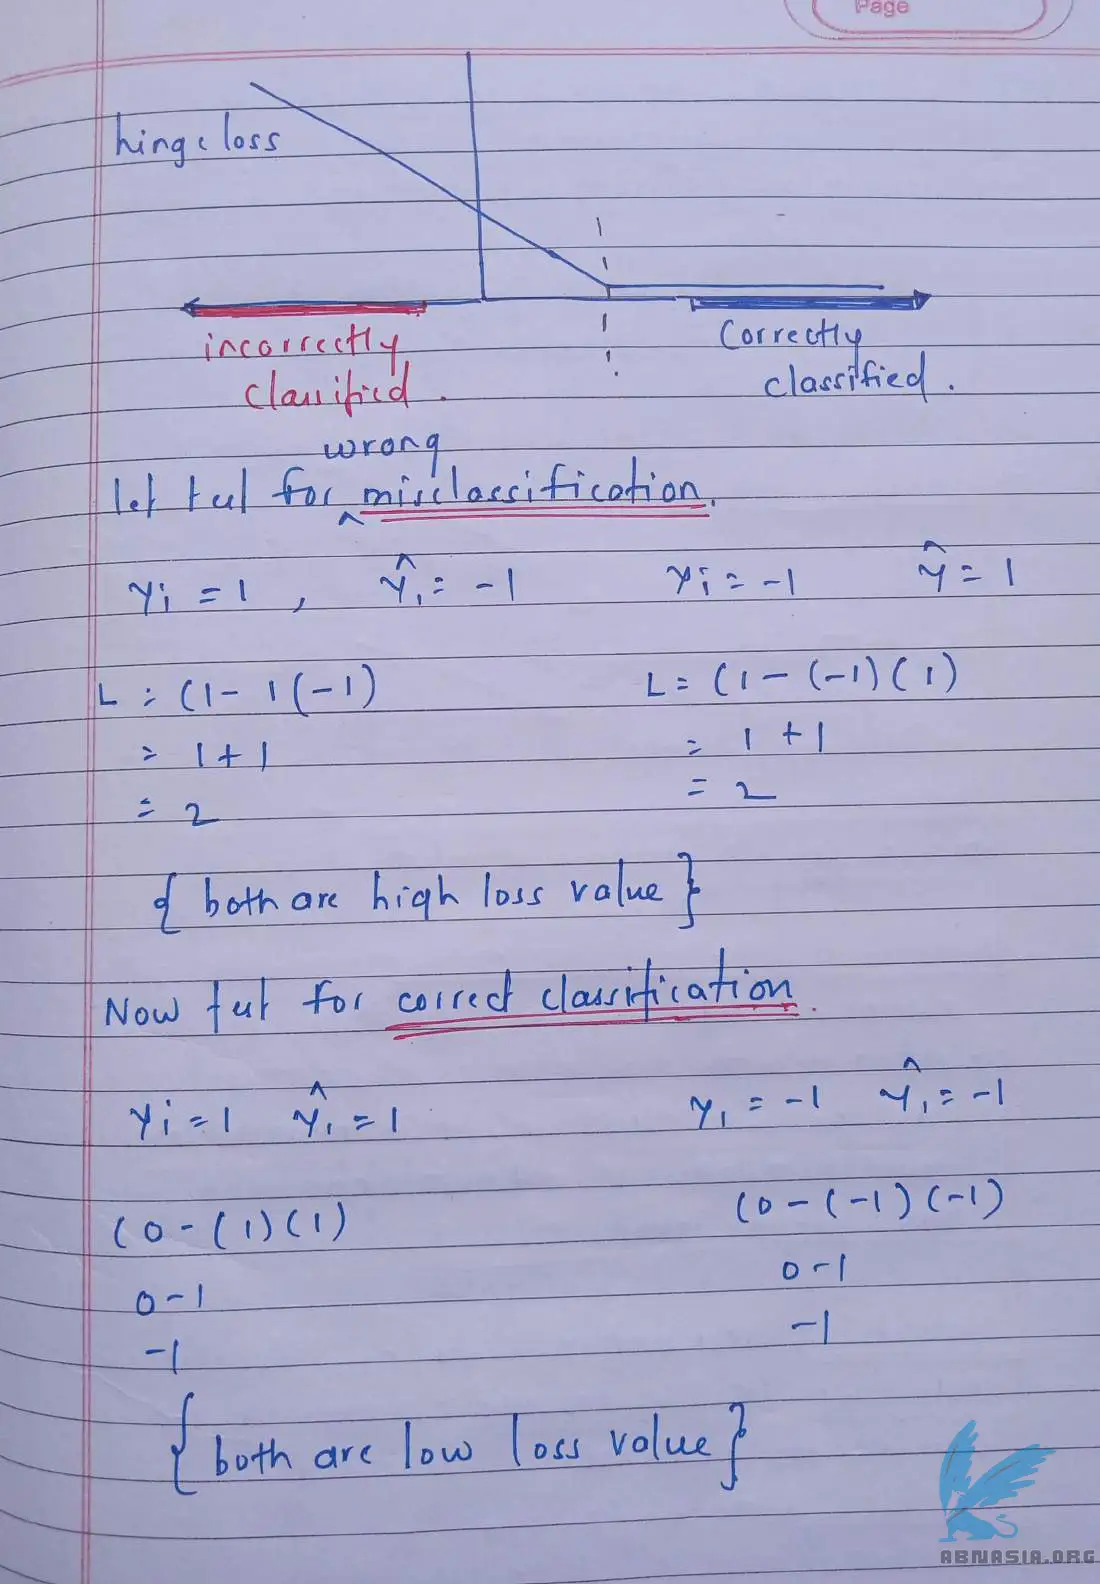 Page
hinge loss
incorrectly
classified.
Correctly
classified.
wrong
let test for ^ misclassification.
yi = 1 , ŷi = -1
yi = -1 ŷ = 1
L = (1 - 1(-1)
= 1 + 1
= 2
L = (1 - (-1)(1)
= 1 + 1
= 2
{ both are high loss value }
Now test for correct classification.
yi = 1 ŷi = 1
yi = -1 ŷi = -1
(0 - (1)(1)
0 - 1
-1
(0 - (-1)(-1)
0 - 1
-1
{ both are low loss value }
ABNASIA.ORG